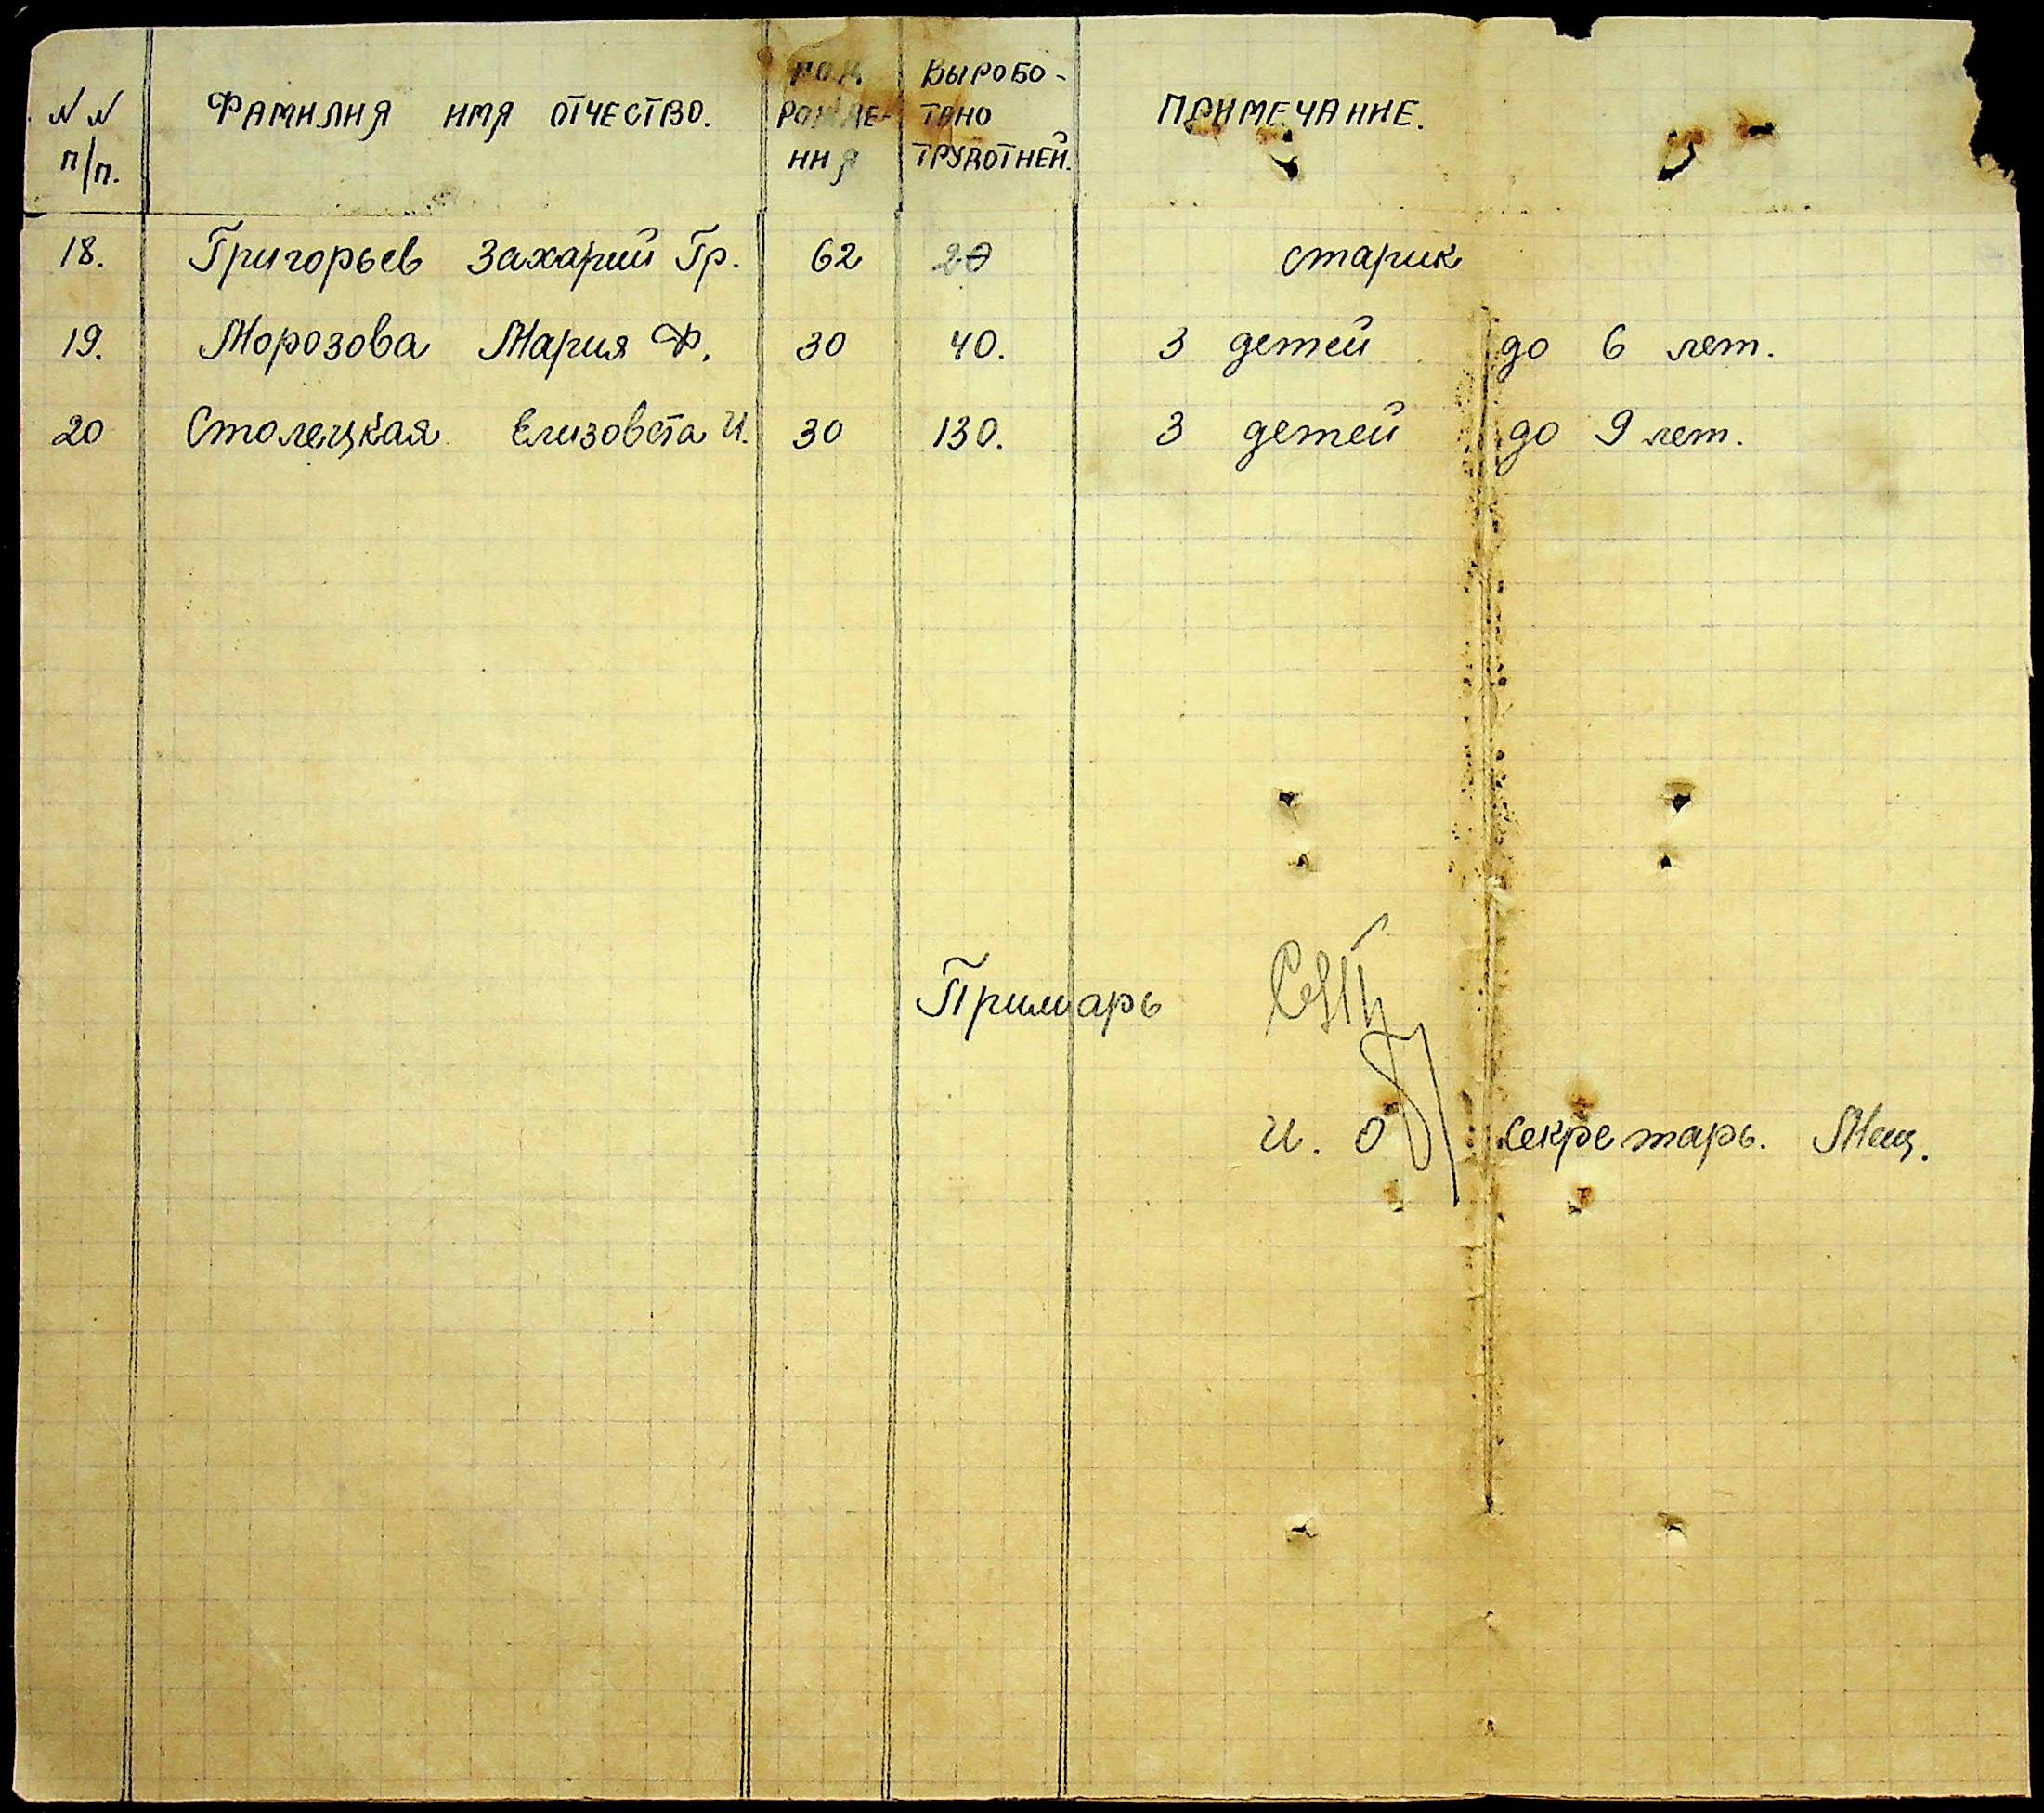 № № п/п. ФАМИЛИЯ ИМЯ ОТЧЕСТВО. год рожде-ния Выробо-тано трудотней. ПРИМЕЧАНИЕ.
18. Григорьев Захарий Гр. 62 20 старик
19. Морозова Мария Ф. 30 40. 3 детей до 6 лет.
20 Столецкая Елизовета И. 30 130. 3 детей до 9 лет.
Примарь
и. о секретарь.